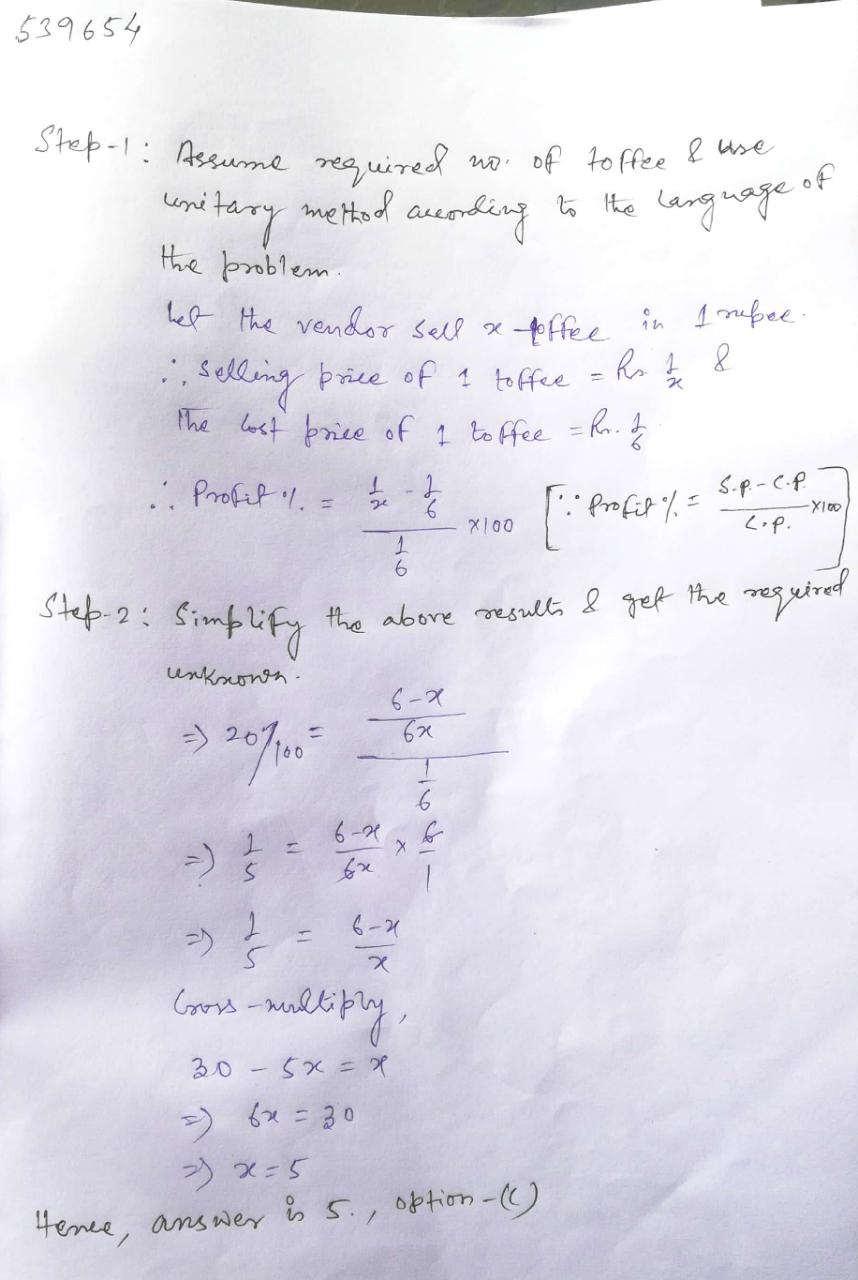 539654
Step-1: Assume required no. of toffee & use
unitary method according to the language of
the problem.
Let the vendor sell x toffee in 1 rupee.
∴, selling price of 1 toffee = Rs 1/x &
The Cost price of 1 toffee = Rs. 1/6
∴ Profit %. = (1/x - 1/6)/(1/6) ×100 [∵ Profit % = (S.P. - C.P.)/C.P. ×100]
Step-2: Simplify the above results & get the required
unknown.
⇒ 20/100 = ((6-x)/6x)/(1/6)
⇒ 1/5 = (6-x)/6x × 6/1
⇒ 1/5 = (6-x)/x
Cross-multiply,
30 - 5x = x
⇒ 6x = 30
⇒ x = 5
Hence, answer is 5., option-(C)